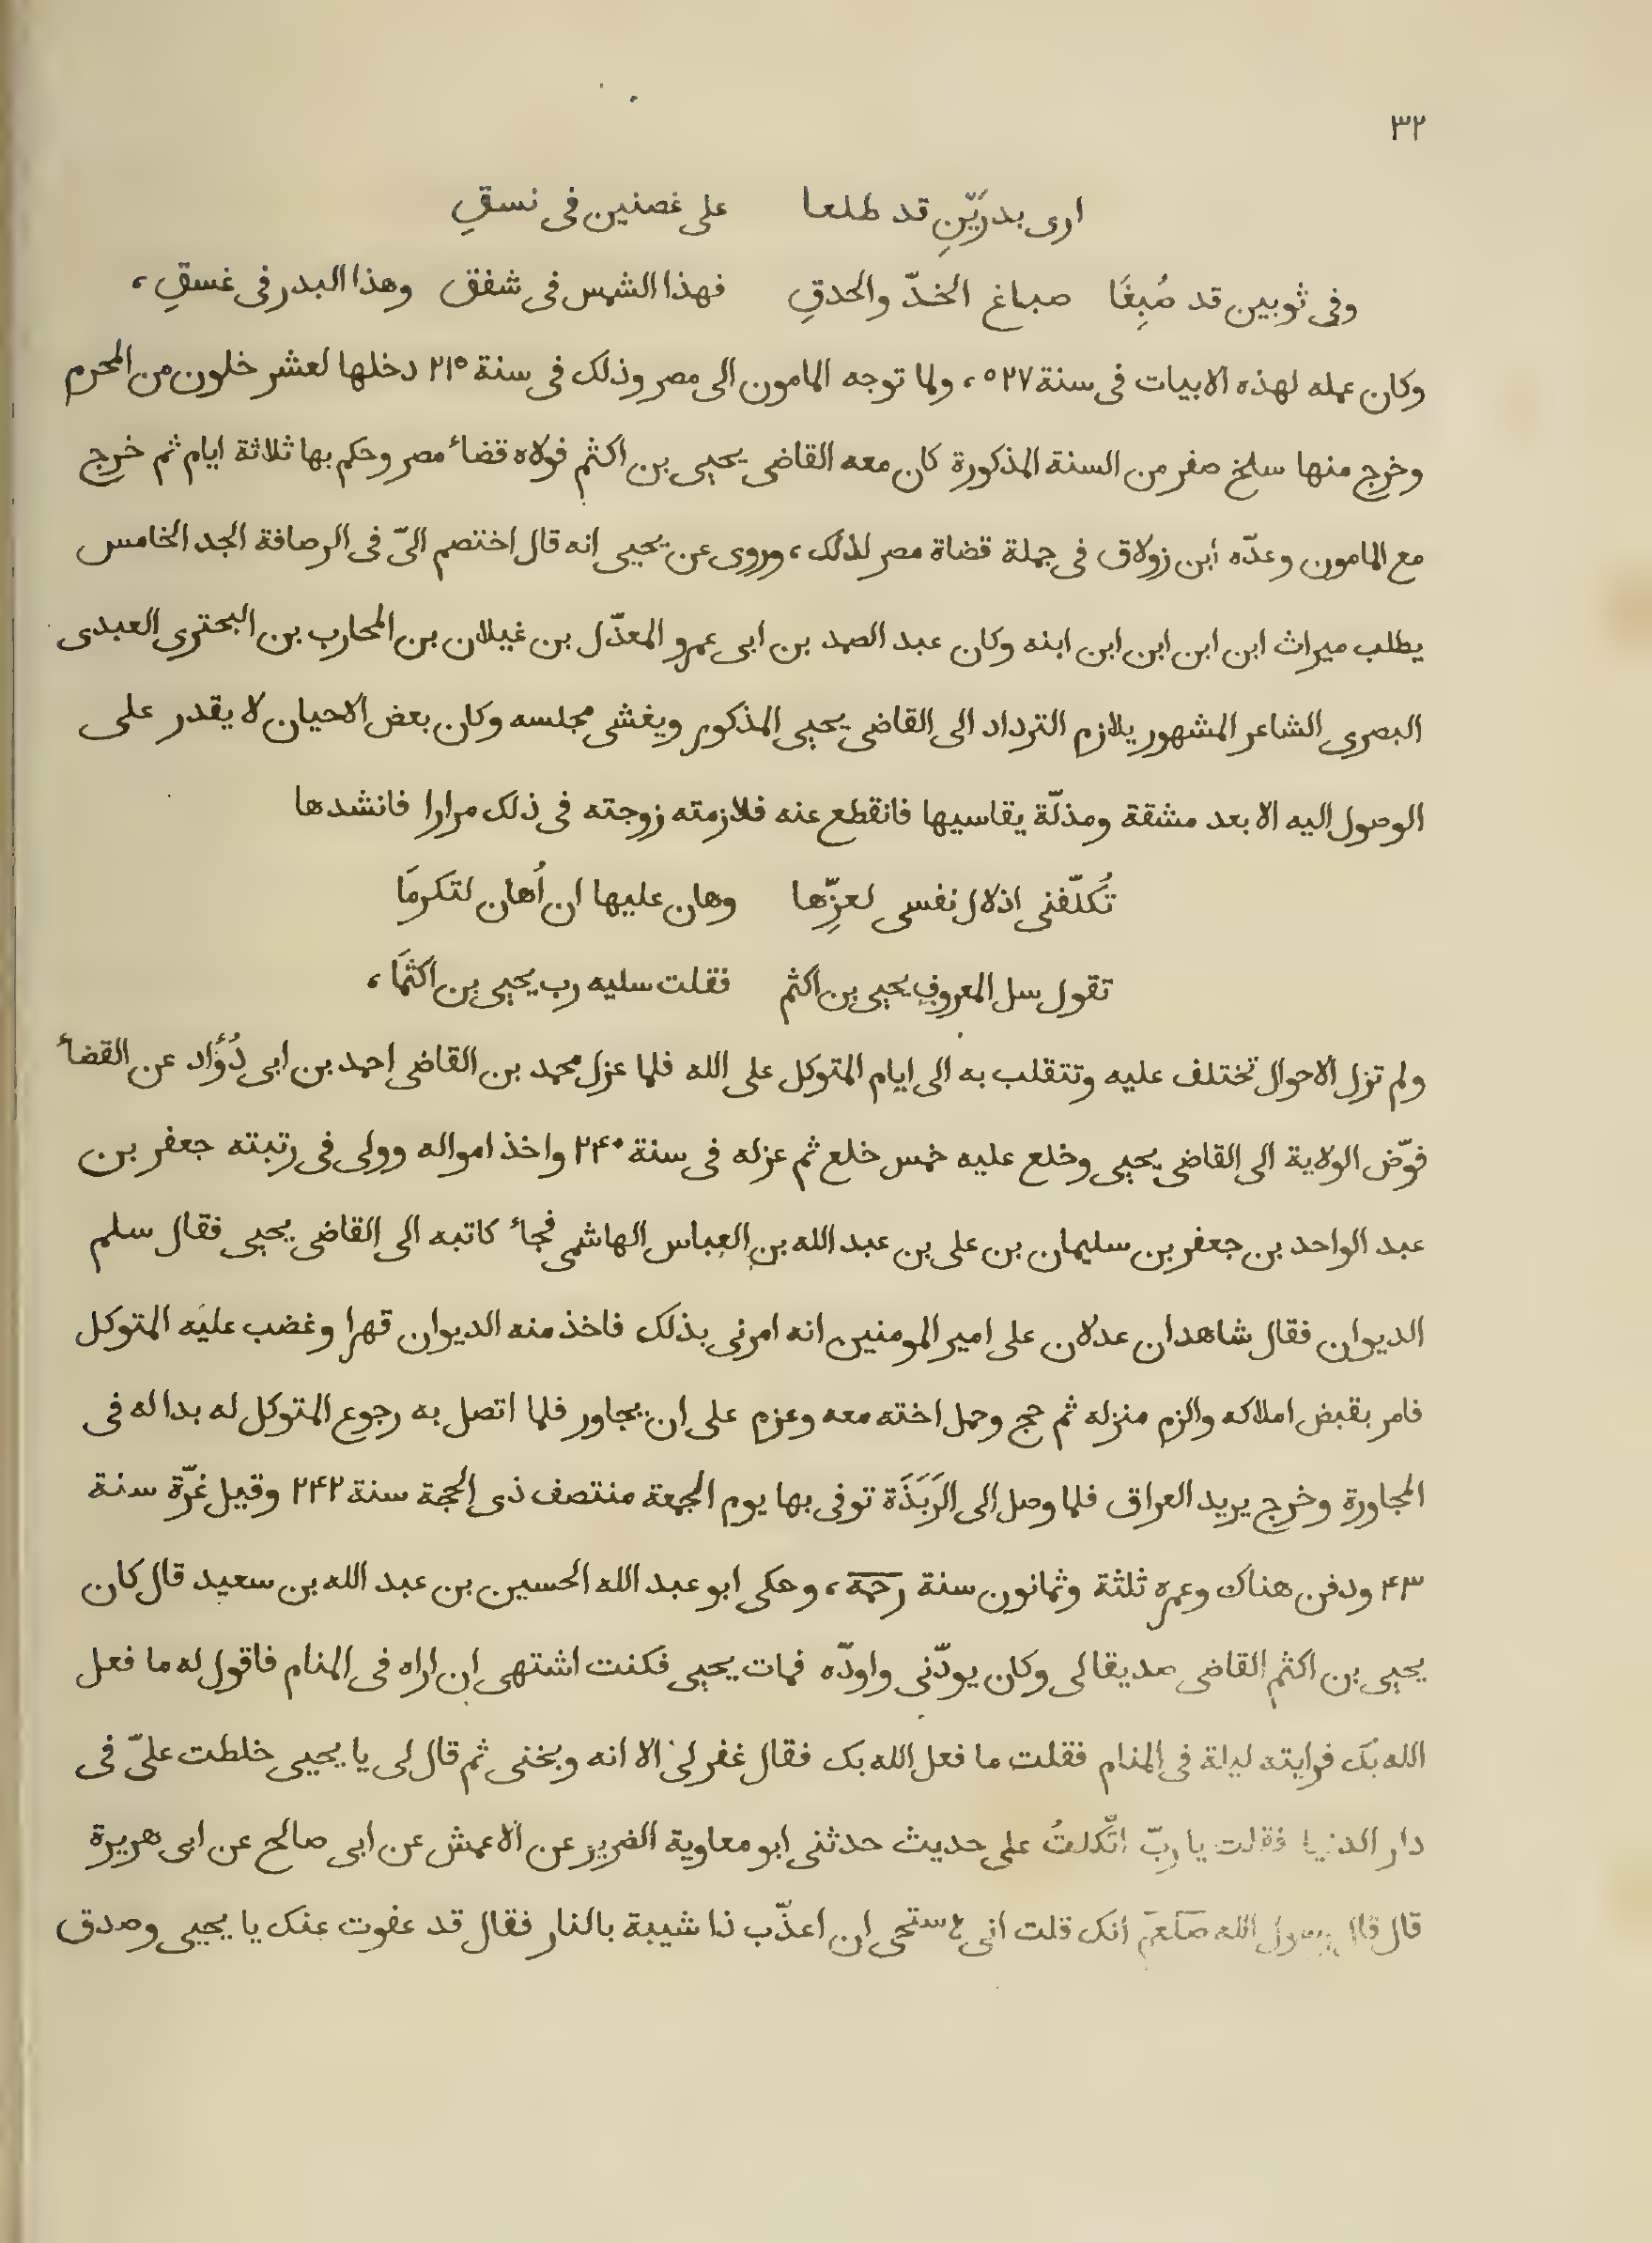 ٣٢
ارى بدرَيّنِ قد طلعا على غصنين فى نسقِ
وفى ثوبين قد صُبِغَا صباغ الخدّ والحدقِ فهذا الشمس فى شفق وهذا البدر فى غسقِ ،
وكان عمله لهذه الابيات فى سنة ٥٢٧ ، ولما توجه المامون الى مصر وذلك فى سنة ٢١٥ دخلها لعشر خلون من المحرم
وخرج منها سلخ صفر من السنة المذكورة كان معه القاضى يحيى بن اكثم فولاه قضاء مصر وحكم بها ثلاثة ايام ثم خرج
مع المامون وعدّه ابن زولاق فى جملة قضاة مصر لذلك ، وروى عن يحيى انه قال اختصم الىّ فى الرصافة الجد الخامس
يطلب ميراث ابن ابن ابن ابن ابنه وكان عبد الصمد بن ابى عمرو المعذّل بن غيلان بن المحارب بن البحترى العبدى
البصرى الشاعر المشهور يلازم الترداد الى القاضى يحيى المذكور ويغشى مجلسه وكان بعض الاحيان لا يقدر على
الوصول اليه الا بعد مشقة ومذلّة يقاسيها فانقطع عنه فلازمته زوجته فى ذلك مرارا فانشدها
تُكلّفنى اذلال نفسى لعزِّها وهان عليها ان أُهان لتكرمَا
تقول سل المعروف يحيى بن اكثم فقلت سليه رب يحيى بن اكثمَا ،
ولم تزل الاحوال تختلف عليه وتتقلب به الى ايام المتوكل على الله فلما عزل محمد بن القاضى احمد بن ابى دُؤَاد عن القضاء
فوّض الولاية الى القاضى يحيى وخلع عليه خمس خلع ثم عزله فى سنة ٢٤٠ واخذ امواله وولى فى رتبته جعفر بن
عبد الواحد بن جعفر بن سليمان بن على بن عبد الله بن العباس الهاشمى فجاء كاتبه الى القاضى يحيى فقال سلم
الديوان فقال شاهدان عدلان على امير المومنين انه امرنى بذلك فاخذ منه الديوان قهرا وغضب عليه المتوكل
فامر بقبض املاكه والزم منزله ثم حج وحمل اخته معه وعزم على ان يجاور فلما اتصل به رجوع المتوكل له بدا له فى
المجاورة وخرج يريد العراق فلما وصل الى الرَبَذَة توفى بها يوم الجمعة منتصف ذى الحجة سنة ٢٤٢ وقيل غرّة سنة
٤٣ ودفن هناك وعمره ثلثة وثمانون سنة رحمه ، وحكى ابو عبد الله الحسين بن عبد الله بن سعيد قال كان
يحيى بن اكثم القاضى صديقا لى وكان يودّنى واودّه فمات يحيى فكنت اشتهى ان اراه فى المنام فاقول له ما فعل
الله بك فرايته ليلة فى المنام فقلت ما فعل الله بك فقال غفر لى الا انه وبخنى ثم قال لى يا يحيى خلطت علىّ فى
دار الدنيا فقلت يا ربّ اتّكلتُ على حديث حدثنى ابو معاوية الضرير عن الاعمش عن ابى صالح عن ابى هريرة
قال قال رسول الله صلعم انك قلت انى لاستحى ان اعذّب ذا شيبة بالنار فقال قد عفوت عنك يا يحيى وصدق